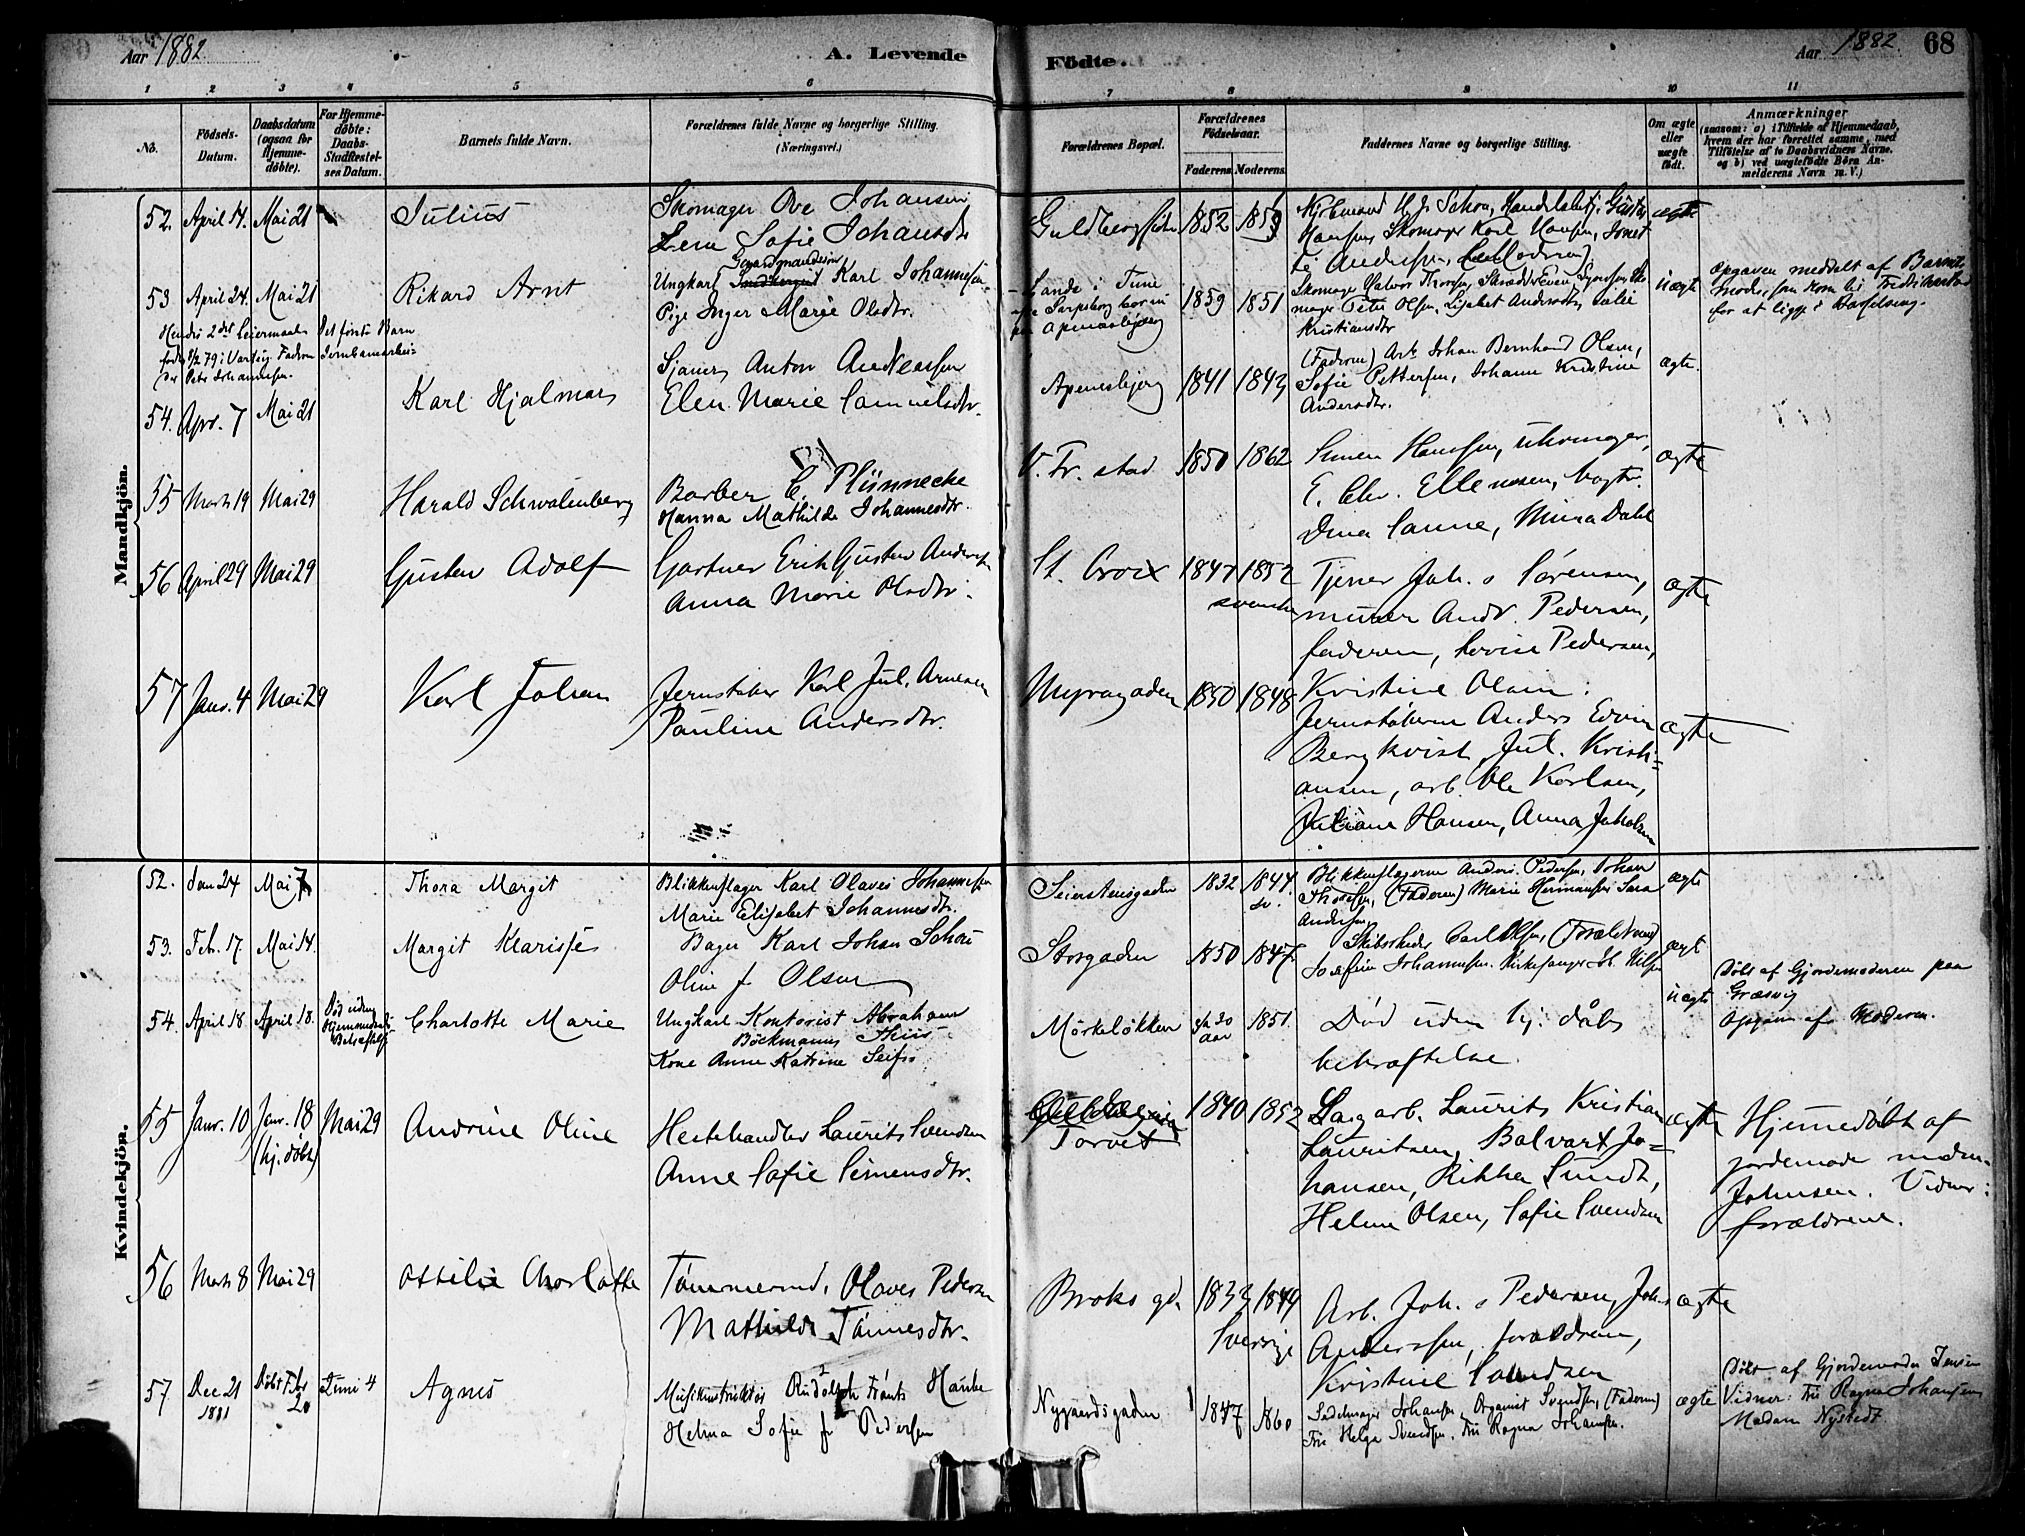 Aar 1882
A. Levende
Födte.
Aar 1882. 68
1 2 3 4 5 6 7 8 9 10 11
No.
Födsels-
Datum.
Daabsdatum
(ogsaa for
Hjemme-
döbte).
For Hjemme-
döbte:
Daabs-
Stadfæstel-
ses Datum.
Barnets fulde Navn.
Forældrenes fulde Navne og borgerlige Stilling.
(Næringsvei.)
Forældrenes Bopæl.
Forældrenes
Födselsaar.
Faderens Moderens
Faddernes Navne og borgerlige Stilling.
Om ægte
eller
uægte
födt.
Anmærkninger
(saasom: a) i Tilfælde af Hjemmedaab,
hvem der har forrettet samme, med
Tilföielse af to Daabsvidners Navne,
og b) ved uægtefödte Börn An-
melderens Navn m. V.)
Mandkjön.
52. April 14. Mai 21
Julius
Skomager Ove Johansen
Lena Sofie Johansdtr
1852 1859
Skomager Karl Hansen,
ægte
53 April 24. Mai 21
Rikard Arnt
Gaardmandssön
Ungkarl Karl Johannesen
Pige Inger Marie Olsdtr.
Tune
Apenesbjerg
1859 1851
Peter Olsen, Lisabet Andersdtr,
Kristiansdtr
uægte
Opgaven meddelt af Barnets
Moder, som kom til Fredrikstad
for at ligge i Barselseng.
Det förste Barn
54. Apr. 7 Mai 21
Karl Hjalmar
Anton Andreassen
Elen Marie Samuelsdtr.
Apenesbjerg 1841 1843
(Faderen) Arb. Johan Bernhard Olsen,
Sofie Pettersen, Johanne Kristine
Andersdtr.
ægte.
55 Marts 19 Mai 29
Harald Schwalenberg
Barber C. Plünnecke
Hanna Mathilde Johannesdtr.
V. Fr. stad 1850 1862
Simen Hanssen, uhrmager,
E. Chr. Ellenssen, bogtr.
Dina Sanne, Mina Dahl
ægte
56 April 29 Mai 29
Gustav Adolf
Gartner Erik Gustav Anders
Anna Marie Olsdtr.
St. Croix 1847 1852
svenske
Tjener Joh. Sørensen,
murer Andr. Pedersen,
faderen, Lovise Pedersen,
Kristine Olsen.
ægte
57 Janr. 4 Mai 29
Karl Johan
Jernstøber Karl Jul. Arnesen
Pauline Andersdtr.
Myragaden 1850 1848
Jernstøberne Anders Edvin
Bergkvist, Jul. Kristi=
ansen, arb. Ole Karlsen,
Juliane Hansen, Anna Jakobsen
ægte
Kvindekjön.
52. Jan 24 Mai 7
Thora Margit
Blikkenslager Karl Olaves Johannessen
Marie Elisabet Johannesdtr.
Seierstensgaden 1832 1844.
sv.
Blikkenslagerne Anders Pedersen, Johan
(Faderen) Marie Hermansen Sara
Andersen
ægte
53. Feb. 17. Mai 14.
Margit Klarisse
Bager Karl Johan Schou
Oline f. Olsen
Storgaden 1850 1847.
Skibsreder Carl Olsen, (Forældrene)
Josefine Johannesen. Kirkesanger
ægte
54. April 18. April 18.
Död uden
Hjemmedaabs
Bekræftelse
Charlotte Marie
Ungkarl Kontorist Abraham
Böckmann Thiis
Kone Anne Katrine
Mörkeløkken
30
aar
1851.
Død uden hj. dåbs
bekræftelse.
uægte
Döbt af Gjordemoderen paa
Græsvig
Opgave af Moderen.
55 Janr. 10 Janr. 18
(hj. døbt)
Mai 29
Andrine Oline
Hestehandler Laurits Svendsen
Anne Sofie Simensdtr.
Torvet
1840 1852
arb. Laurits Kristian
Lauritsen, Bolvart Jo=
hansen, Rikka Sundt,
Helene Olsen, Sofie Svendsen
ægte
Hjemedøbt af
jordemoder madm.
Johnsen. Vidner:
forældrene.
56 Marts 8 Mai 29
Ottilie Charlotte
Tømmermd. Olaves Pedersen
Mathilde Tönnesdtr.
Broks gd. 1833 1844
Sverrige
Arb. Joh. Pedersen, Johs
Anderssen, forældrene,
Kristine
ægte
57. Dec 21
1881
Döbt Febr
20
Juni 4
Agnes
Musikinstruktör Rudolph Frants Hanke
Helma Sofie f. Pedersen
Nygaardsgaden 1847 1860
Sadelmager Johansen, Organist Svendsen, (Faderen)
Fru Helga Svendsen. Fru Ragna Johansen.
ægte
Döbt af Gjordemoder Jensen
Vidner: Fru Ragna Johansen
Madam Nystedt